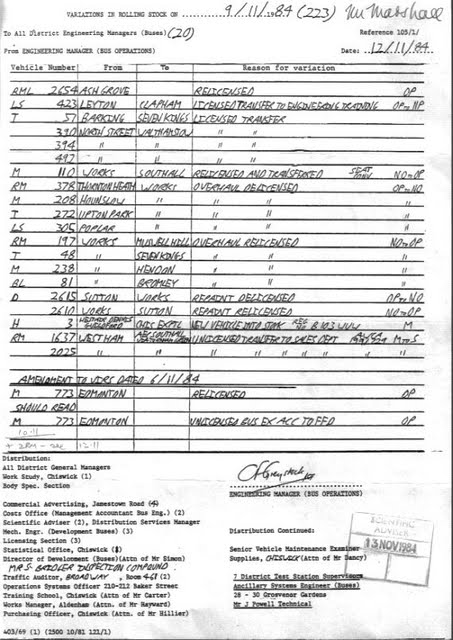 VARIATIONS IN ROLLING STOCK ON 9/11/84 (223) Mr Marshall
To All District Engineering Managers (Buses) (20) Reference 105/1/
From ENGINEERING MANAGER (BUS OPERATIONS) Date: 12/11/84
Vehicle Number From To Reason for variation
RML 2654 ASH GROVE RELICENSED OP
LS 423 LEYTON CLAPHAM LICENSED TRANSFER TO ENGINEERING TRAINING OP TO NP
T 57 BARKING SEVEN KINGS LICENSED TRANSFER
390 NORTH STREET WALTHAMSTOW " "
394 " " " "
492 " " " "
M 110 WORKS SOUTHALL RELICENSED AND TRANSFERRED SEAT CONV. NO TO OP
RM 378 THORNTON HEATH WORKS OVERHAUL DELICENSED OP TO NO
M 208 HOUNSLOW " " " "
T 272 UPTON PARK " " " "
LS 305 POPLAR " " " "
RM 197 WORKS MUSWELL HILL OVERHAUL RELICENSED NO TO OP
T 48 " SEVEN KINGS " " "
M 238 " HENDON " " "
BL 81 " BROMLEY " " "
D 2615 SUTTON WORKS REPAINT DELICENSED OP TO NO
2610 WORKS SUTTON REPAINT RELICENSED NO TO OP
H 3 HESTAIR DENNIS GUILDFORD CHIS EXPTL NEW VEHICLE INTO STOCK REG NO B103 WUW M
RM 1637 WEST HAM AEC SOUTHALL UNLICENSED TRANSFER TO SALES DEPT M TO S
2025 " " " " " " " "
AMENDMENT TO VIRS DATED 6/11/84
M 773 EDMONTON RELICENSED OP
SHOULD READ
M 773 EDMONTON UNLICENSED BUS EX ACC TO FFD OP
Distribution:
All District General Managers
Work Study, Chiswick (1)
Body Spec. Section
ENGINEERING MANAGER (BUS OPERATIONS)
Commercial Advertising, Jamestown Road
Costs Office (Management Accountant Bus Eng.) (2)
Scientific Adviser (2), Distribution Services Manager
Mech. Engr. (Development Buses) (3)
Licensing Section (3)
Statistical Office, Chiswick
Director of Development (Buses)(Attn of Mr Simon)
MR S. BRIDLER INSPECTION COMPOUND.
Traffic Auditor, BROADWAY, Room 461 (2)
Operations Systems Officer 210-212 Baker Street
Training School, Chiswick (Attn of Mr Carter)
Works Manager, Aldenham (Attn. of Mr Hayward)
Purchasing Officer, Chiswick (Attn. of Mr Hillier)
Distribution Continued:
Senior Vehicle Maintenance Examiner
Supplies, CHISWICK (Attn of Mr Dancy)
7 District Test Station Supervisors
Ancillary Systems Engineer (Buses)
28 - 30 Grosvenor Gardens
Mr J Powell Technical
SCIENTIFIC
ADVISER
13 NOV 1984
403/69 (1) (2500 10/81 121/1)